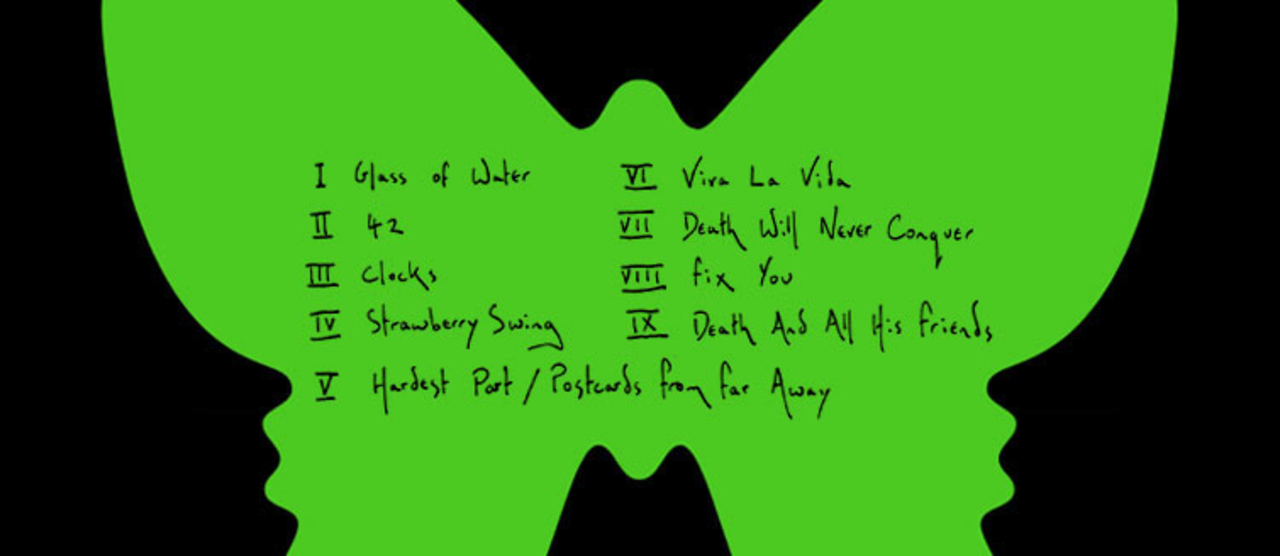 I Glass of Water
II 42
III Clocks
IV Strawberry Swing
V Hardest Part / Postcards from Far Away
VI Viva La Vida
VII Death Will Never Conquer
VIII Fix You
IX Death And All His Friends